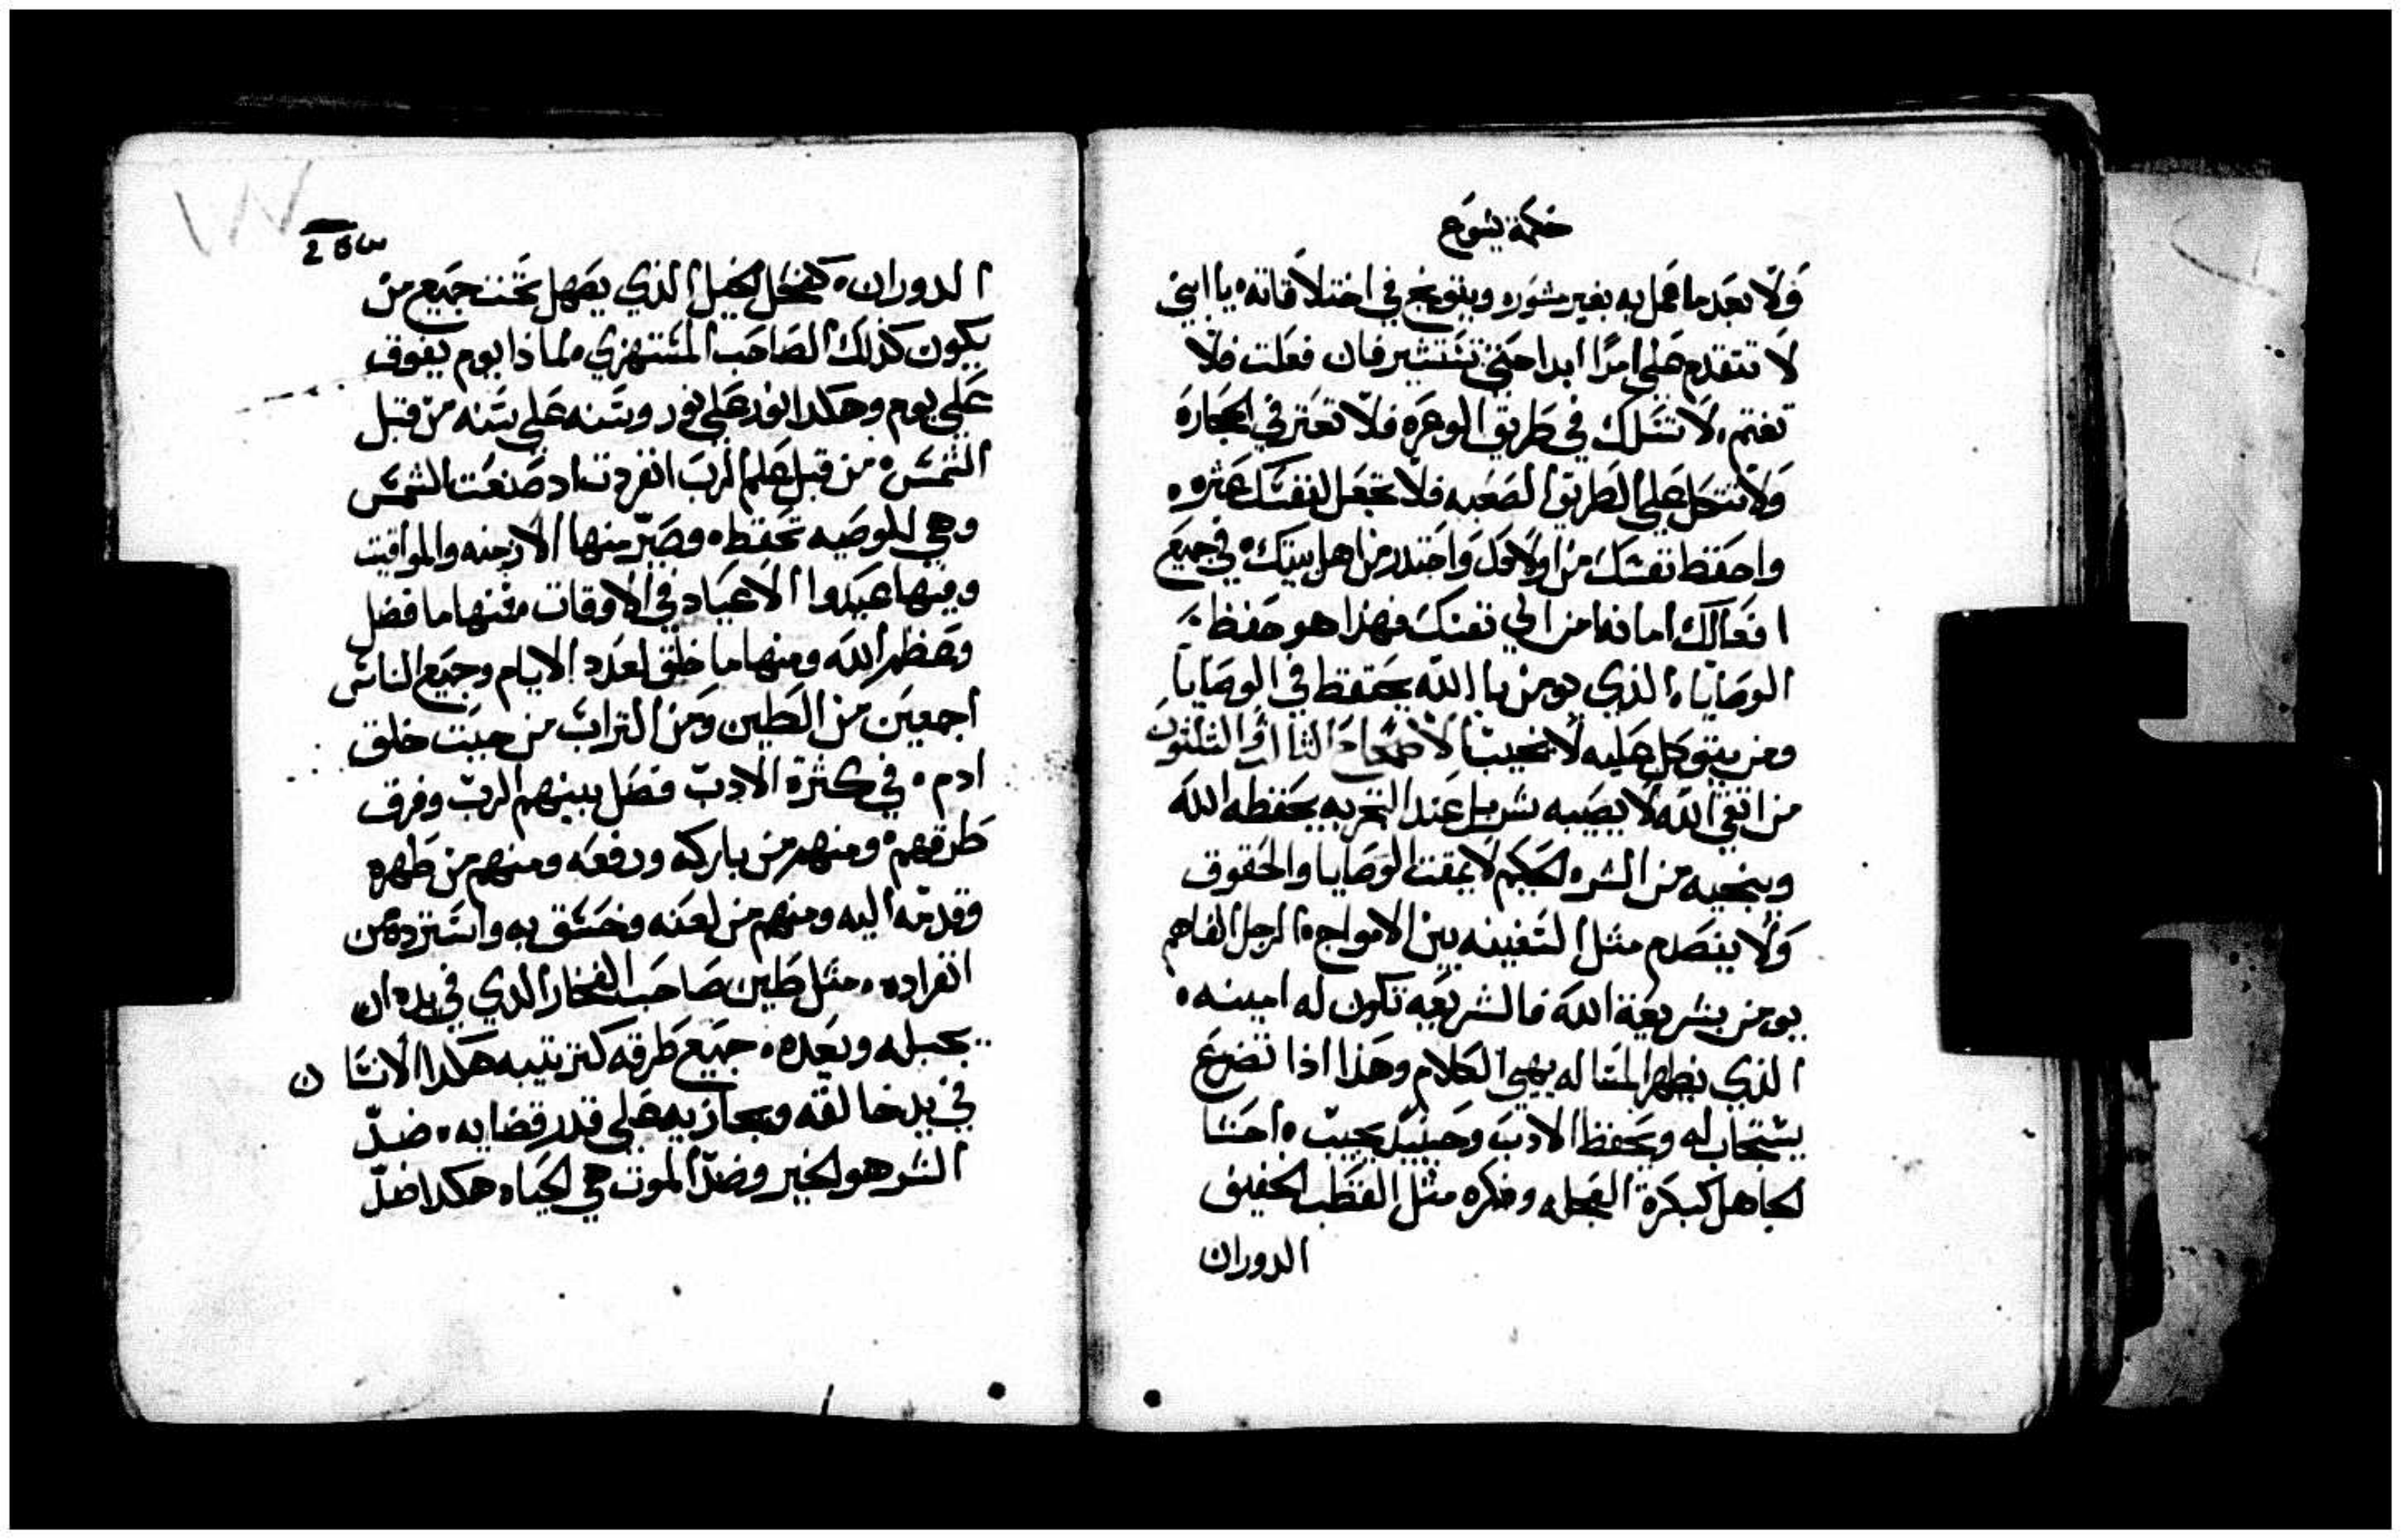 حكمة يشوع
ولا بعد ما عمل به بغير مشوره ويتوبخ في اختلاقاته يا ابني
لا تتقدم على امرًا ابدا حتى تستشير فان فعلت فلا
تغتم، لا تسلك في طريق الوعره فلا تعتر في الحجاره
ولا تتكل على الطريق الصعبه فلا تجعل لنفسك عثره
واحفظ نفسك من اولادك واحتدر من اهل بيتك في جميع
افعالك امانه من الي نفسك فهذا هو حفظ
الوصايا الذي يومن بالله يحتفظ في الوصايا
ومن يتوكل عليه لا يخيب الاصحاح الثالث والثلثون
من اتقى الله لا يصيبه شر بل عند التجربه يحفظه الله
وينجيه من الشر الحكيم لا يمقت الوصايا والحقوق
ولا ينصدم مثل السفينه بين الامواج الرجل الفاهم
يومن بشريعة الله فالشريعه تكون له امينه
الذي يظهر المساله يهيي الكلام وهذا اذا تضرع
يستجاب له ويحفظ الادب وحينيد يجيب احشا
الجاهل كبكرة العجله وفكره مثل القطب الخفيف
الدوران
الدوران كفحل الخيل الذي يصهل تحت جميع من
يكون كذلك الصاحب المستهزي لماذا يوم يفوق
على يوم وهكدا نور على نور وسنه على سنه من قبل
الشمس من قبل علم الرب انفردت اد صنعت الشمس
وهي للوصيه تحفظ وصير منها الازمنه والمواقيت
وفيها عيدوا الاعياد في الاوقات فمنها ما فضل
وعظم الله ومنها ما خلق لعدد الايام وجميع الناس
اجمعين من الطين ومن التراب من حيت خلق
ادم في كثرة الادب فصل بينهم الرب وفرق
طرقهم ومنهم من باركه ورفعه ومنهم من طهره
وقدمه اليه ومنهم من لعنه وخسق به واسترده من
انفراده مثل طين صاحب الفخار الدي في يده ان
يجبله ويعده جميع طرقه كترتيبه هكدا الانسان
في يد خالقه ويجازيه على قدر قضايه ضد
الشر هو الخير وضد الموت هي الحياه هكدا ضد